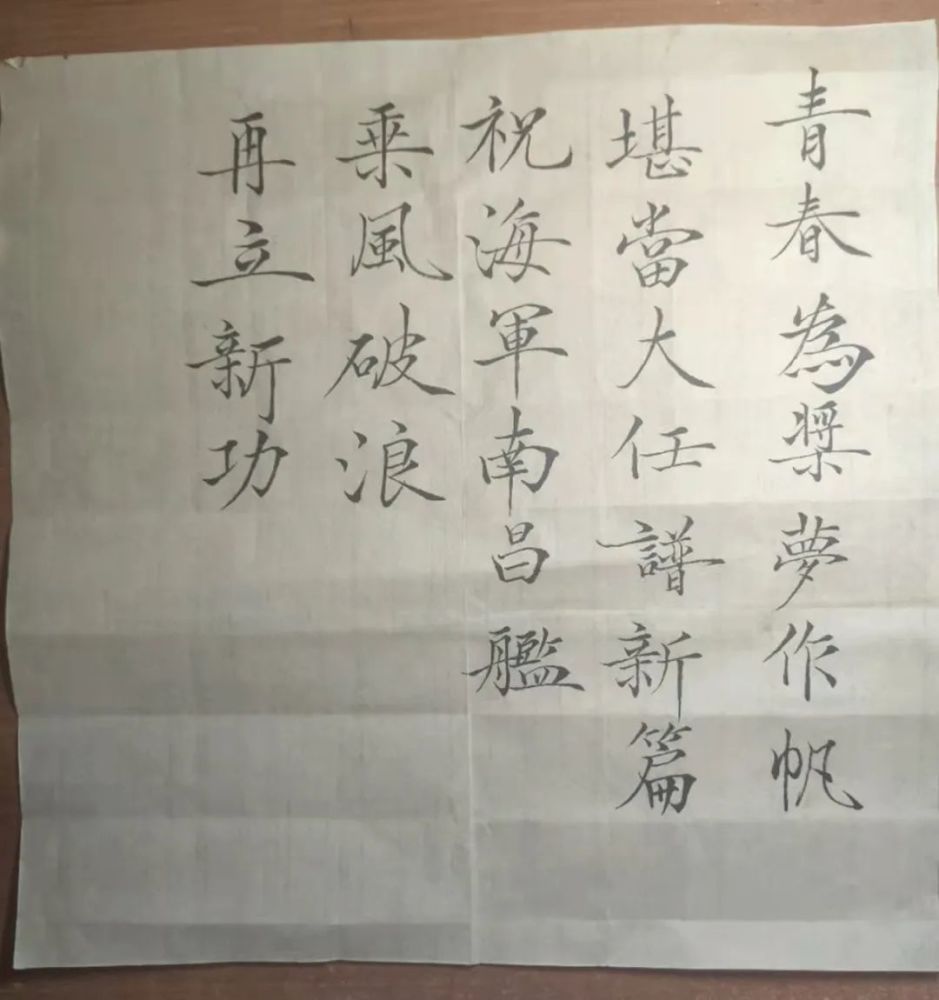 青春為槳夢作帆
堪當大任譜新篇
祝海軍南昌艦
乗風破浪
再立新功